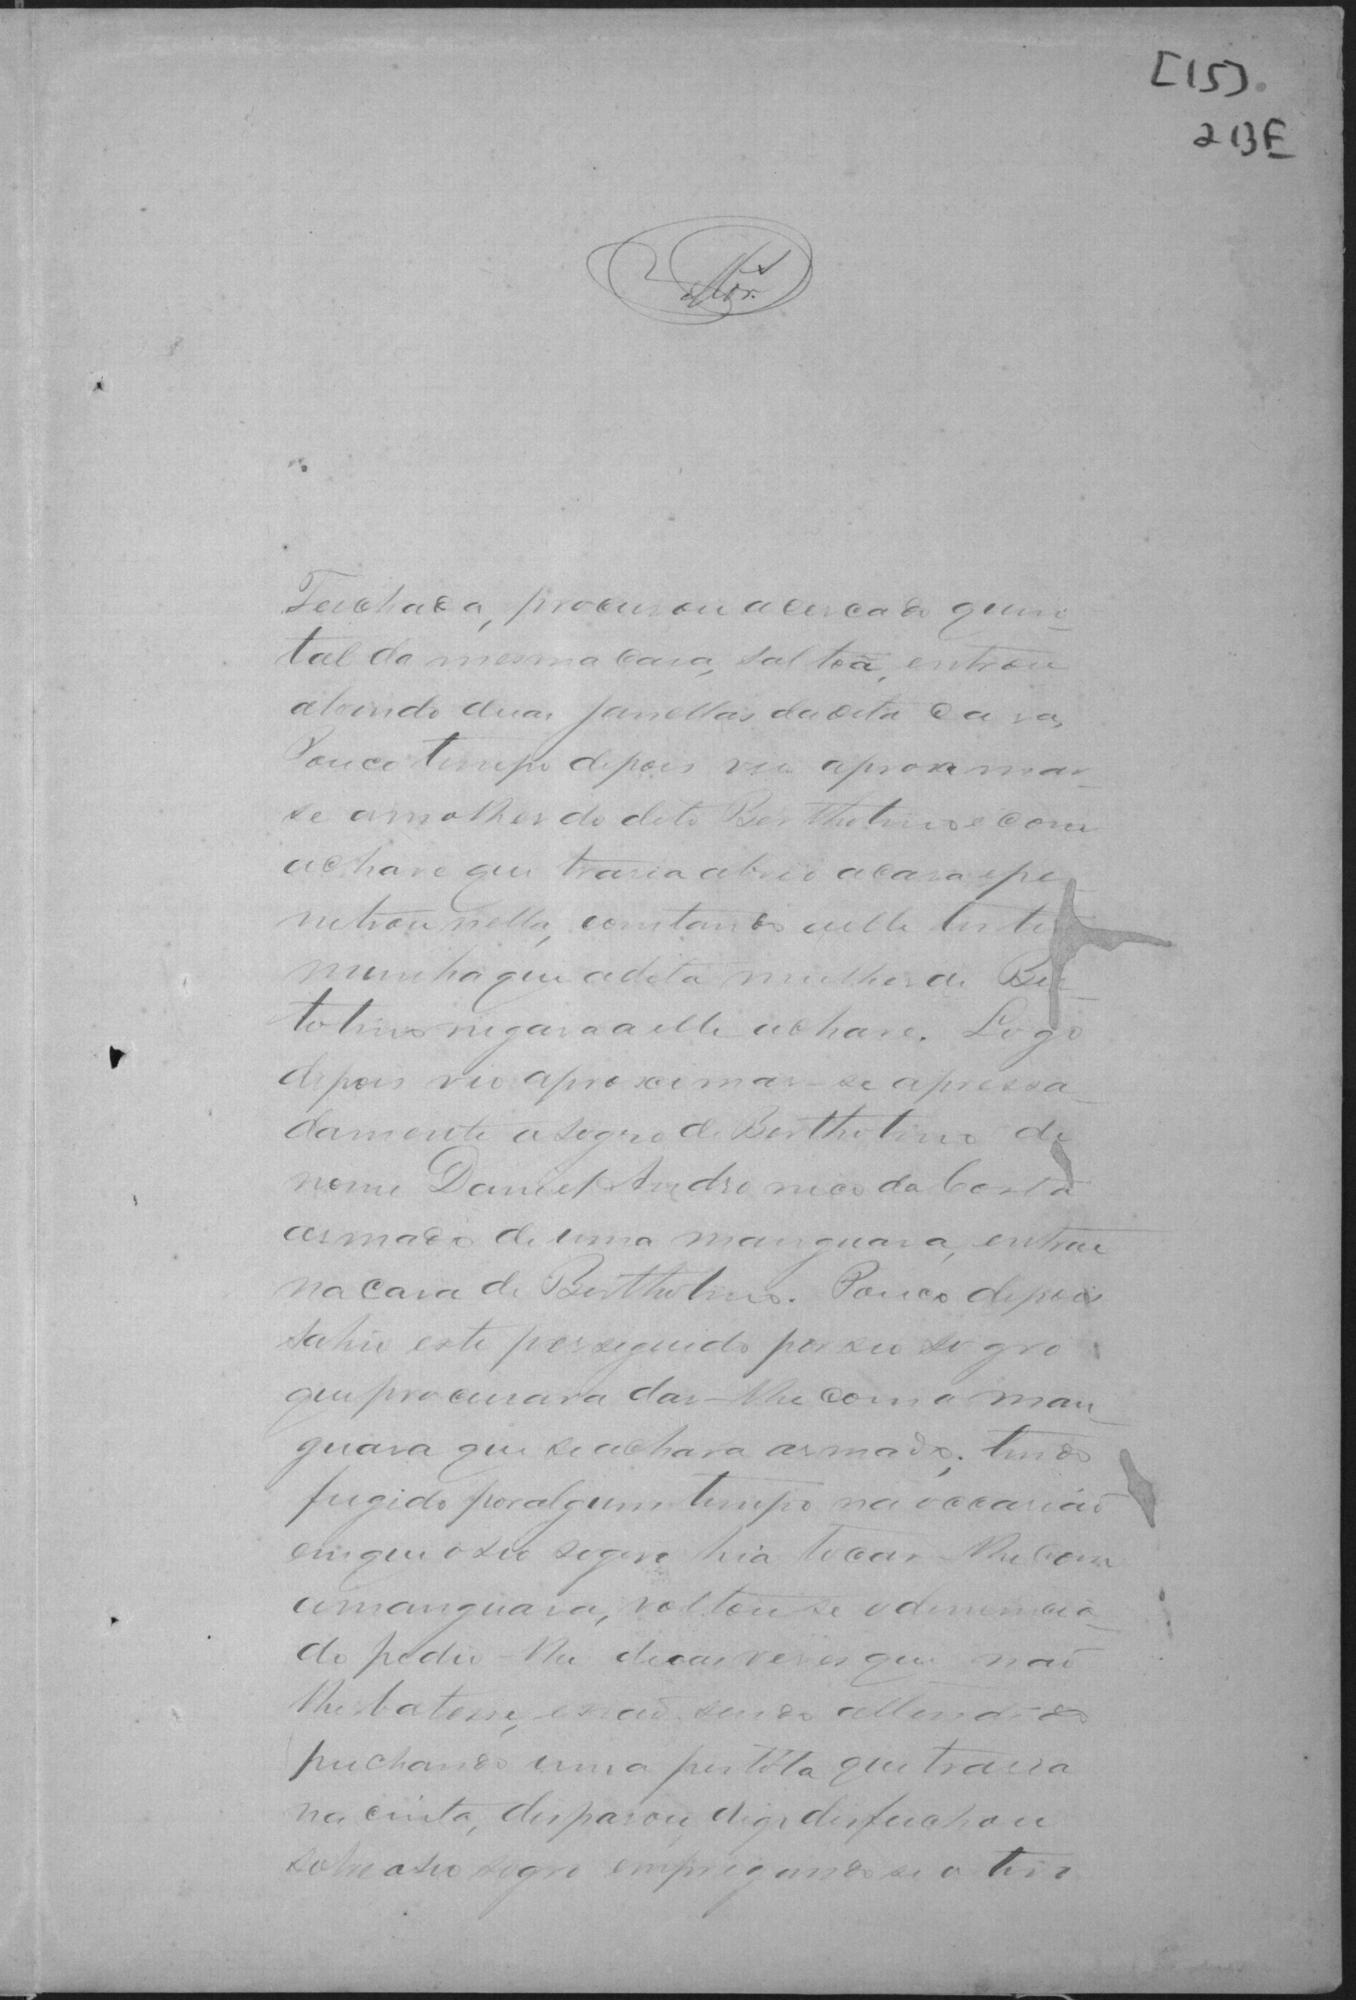 [15].
213F
Feichada, procurou a cerca do quin-
tal da mesma casa, saltoa, entrou
abrindo duas janellas da dita casa,
Pouco tempo depois viu aproximar-
se a molher do dito Bertholino e com
a chave que trasia abrio a casa e pe-
netrou nella, constando a elle teste-
munha que a dita mulher de Ber-
tolino negara a elle a chave. Logo
depois vio aproximar-se apressa-
damente o sogro de Bertholino de
nome Daniel Andronico da Costa
armado de uma manguara, entrar
na casa de Bertholino. Pouco depois
sahio este perseguido por seo sogro
que procurava dar-lhe com a man-
guara que se achava armado; tendo
fugido por algum tempo na occasião
em que o seo sogro hia tocar-lhe com
a manguara, voltou se o denuncia-
do pedio-lhe duas veses que não
lhe batesse, e não sendo attendido
puchando uma pistóla que trasia
na cinta, disparou, digo disfuchou
sobre o seo sogro empregando se o tiro